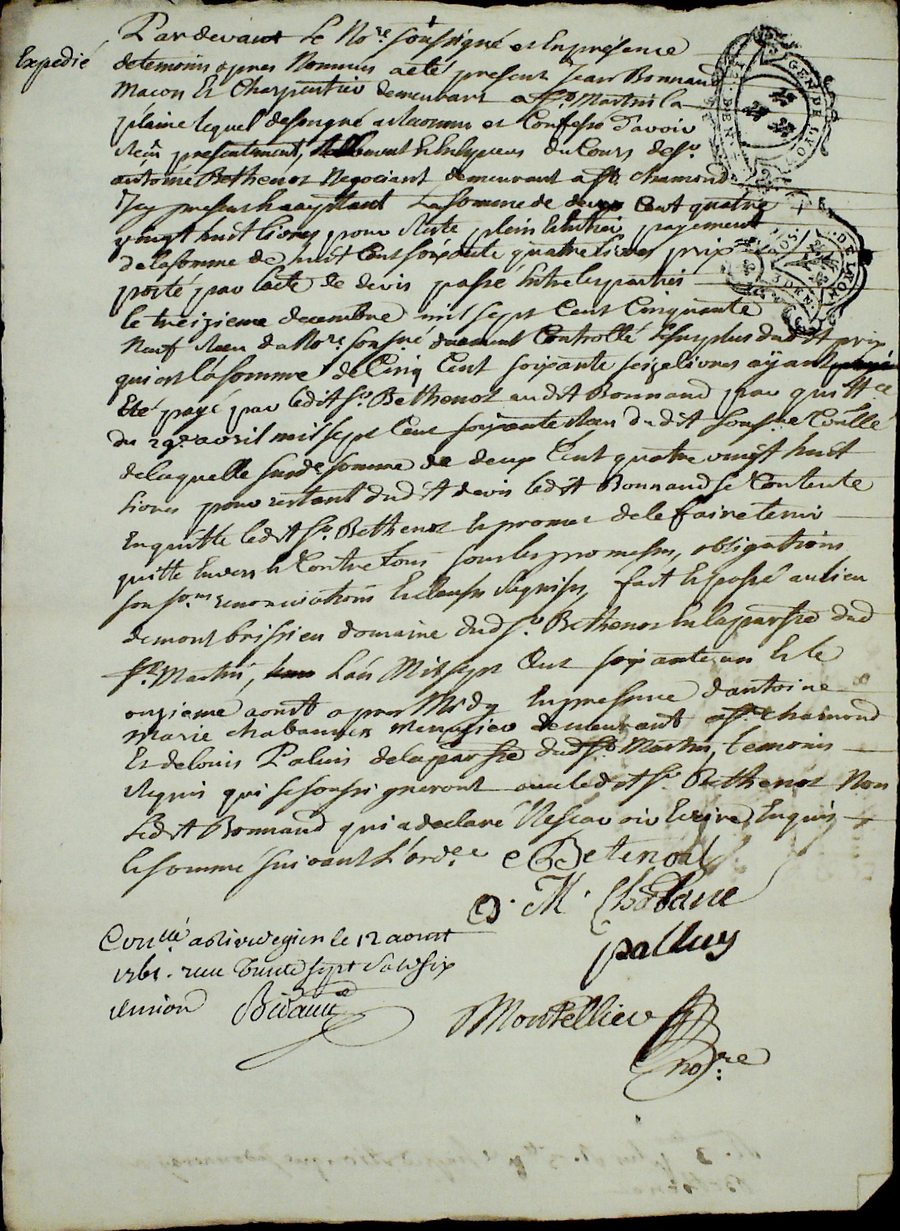 Expedié
Pardevant Le No.re soussigné et En présence
de temoins apres Nommés a eté present Jean Bonnand
Macon Et Charpentier demeurant a St Martin la
plaine lequel de son gré a Reconnu et Confessé d'avoir
Reçu presentement, Et En Especes du Cours de Sr
antoine Bethenot Negociant demeurant a St. chamond
Icy present & acceptant La somme de deux Cent quatre
vingt huit livres pour Reste plein & Entier payement
de la somme de huit Cent soixante quatre livres prix
porté par lacte de devis passé Entre les parties
le treizieme decembre mil sept Cent Cinquante
Neuf Reçu du No.re souss.né duement Controllé Le surplus dud.t prix
qui est la somme de Cinq Cent soixante seize livres aÿant
Eté payé par ledit Sr. Bethenot audit Bonnand par quitt.ce
du 29e avril mil sept Cent soixante Reçu dudit souss.ne Co.llé
de laquelle susd.e somme de deux Cent quatre vingt huit
Livres pour restant dud.t devis led.t Bonnand se Contente
En quitte ledit Sr. Bethenot Et promet de le faire tenir
quitte Envers & Contre tous sous les promesses, obligations
renonciations Et clauses Requises, fait & passé au lieu
de montbrissieu domaine dud. Sr. Bethenot En la parsse dud
St. Martin, L'an Mil sept Cent soixante un & le
onzieme aoust apres Midy En presence d'antoine
Marie chabannes Menusier demeurant a St. chamond
Et de Louis Palluis de la parsse dud.t St. Martin, temoins
Requis qui se sousigneront avec led.t Sr. Bethenot Non
Led.t Bonnand qui a declaré Ne scavoir Ecrire Enquis
& somme suivant L'ord.ce Betenot
M. Chabane
palluy
Con.llé a Rivedegier le 12 aoust
1761. reçu trente sept sols six
Montellier
no.re